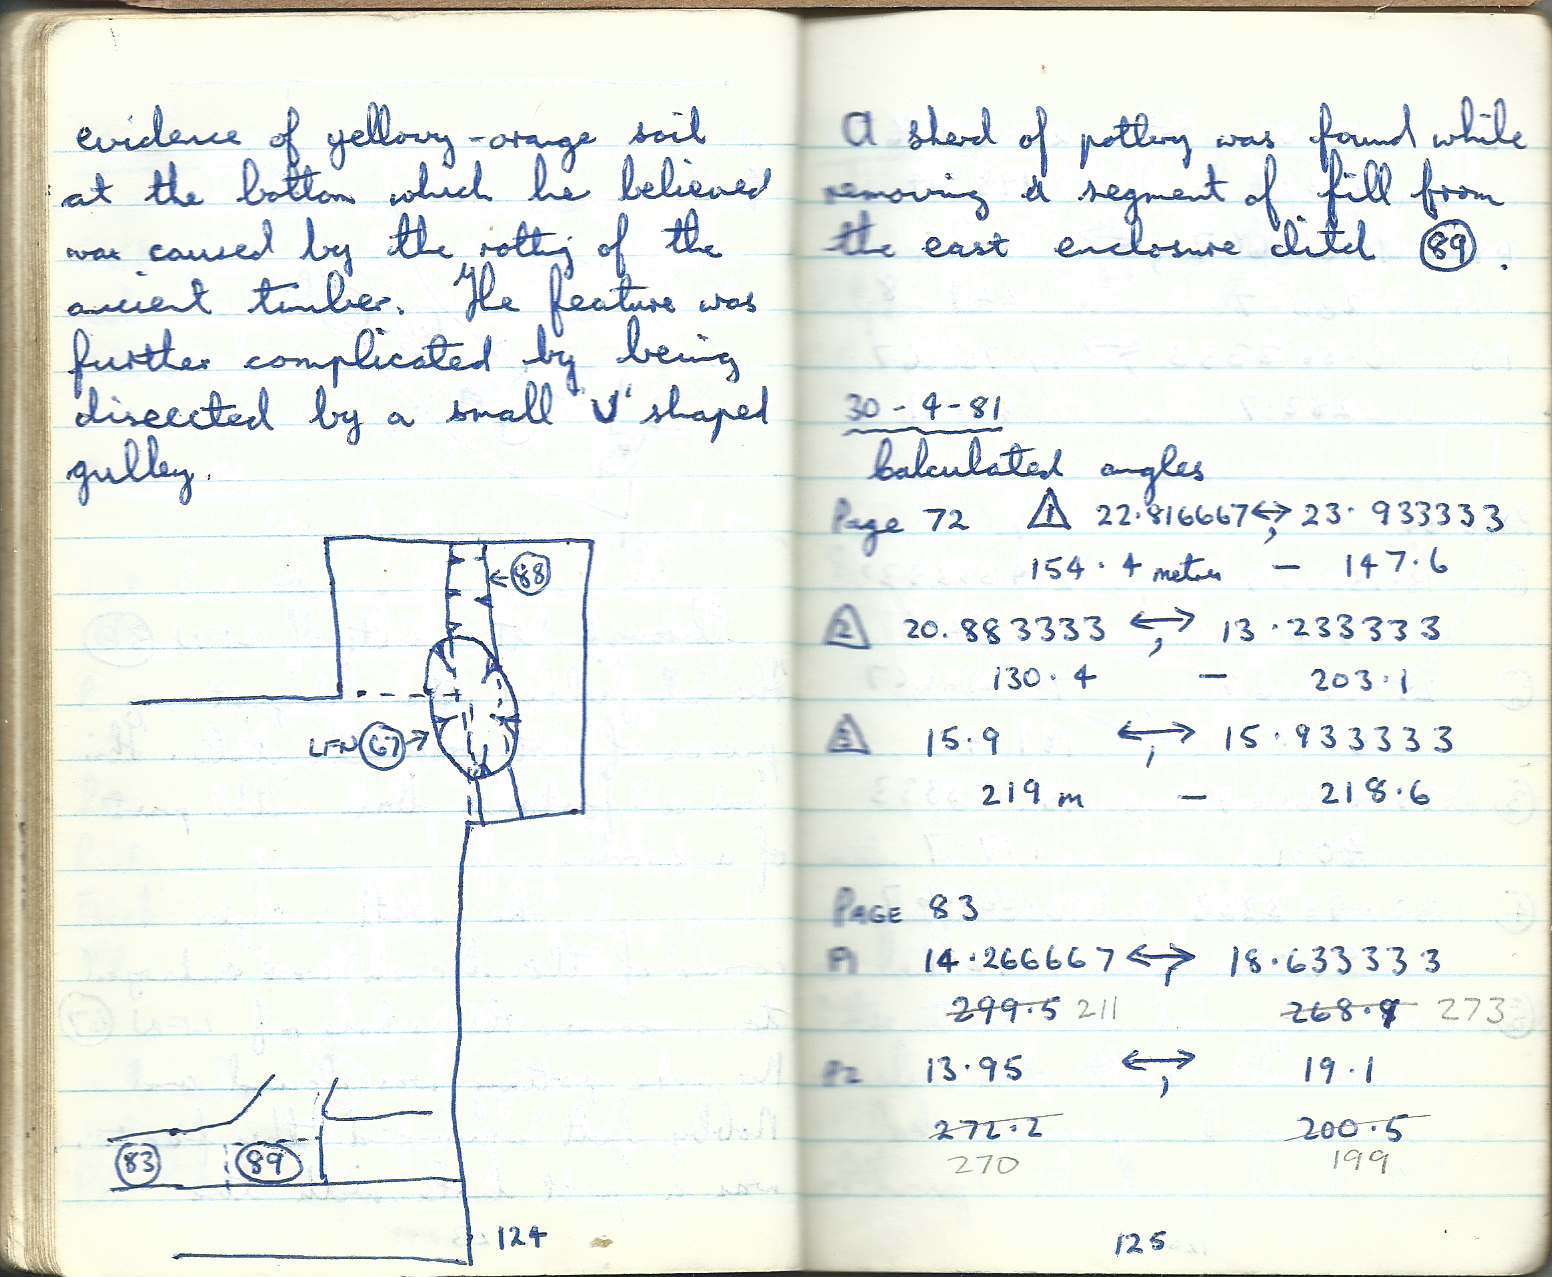 evidence of yellowy-orange soil
at the bottom which he believed
was caused by the rotting of the
ancient timber. The feature was
further complicated by being
disected by a small 'V' shaped
gulley.
88
LFN 67 →
83
89
124
A sherd of pottery was found while
removing a segment of fill from
the east enclosure ditch 89.
30-4-81
Calculated angles
Page 72 1 22.816667 ↔, 23.933333
154.4 metres - 147.6
2 20.883333 ↔, 13.233333
130.4 - 203.1
3 15.9 ↔, 15.933333
219 m - 218.6
PAGE 83
P1 14.266667 ↔, 18.633333
299.5 211 268.9 273
P2 13.95 ↔, 19.1
272.2 200.5
270 199
125